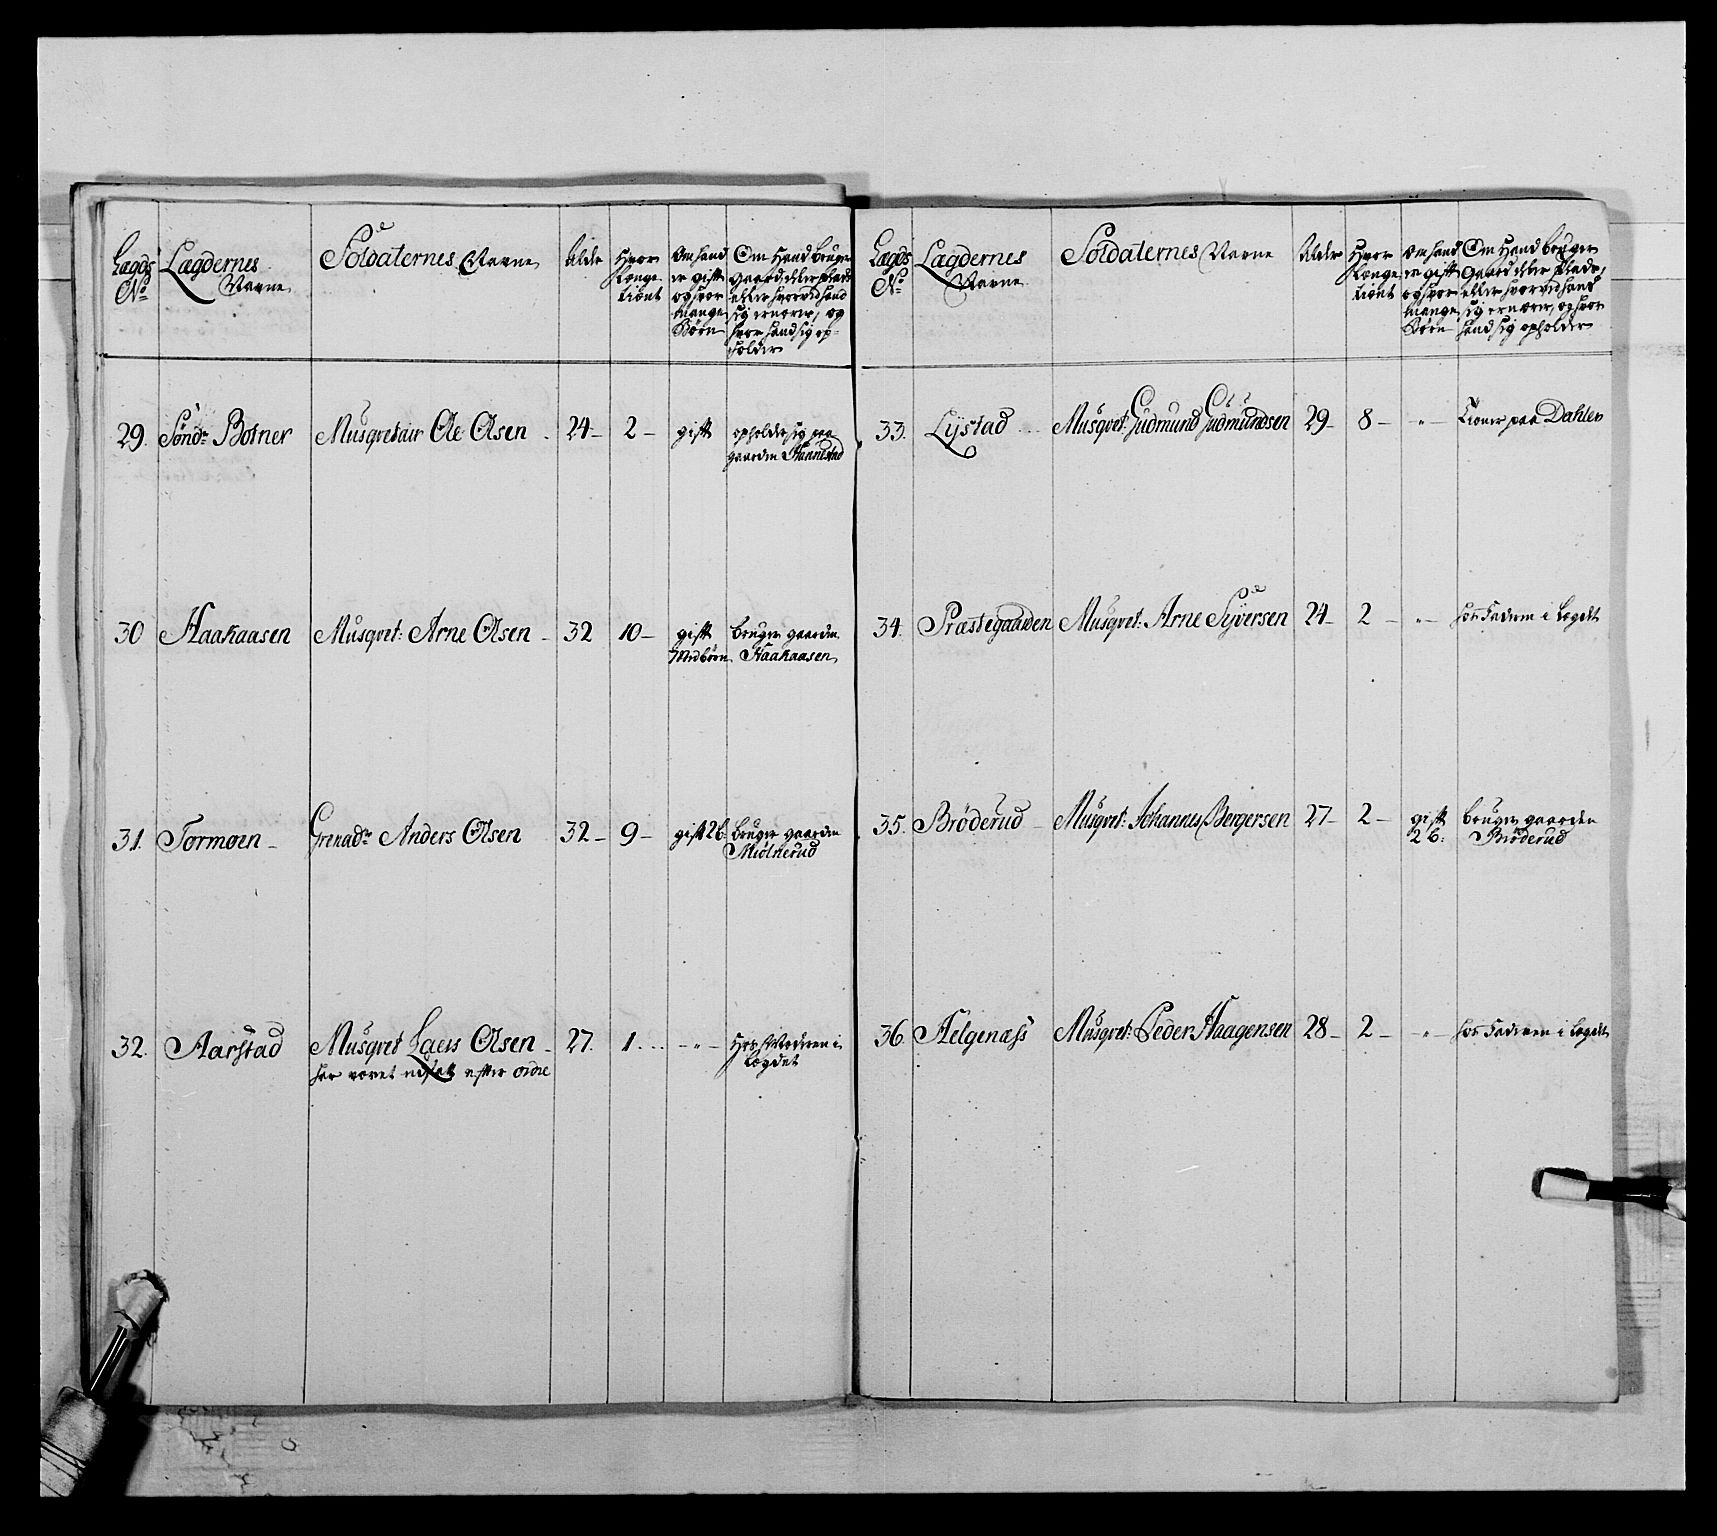 Lægds Lægdernes Soldaternes Navne Alder Hvor Om hand Om Hand bruger
No Navne længe er gift gaard eller Plads
tiønt og hvor eller hvorved hand
mange sig ernærer, og
Børn hvor hand sig op-
holder
29. Sønd: Botner Musqvetair Ole Olsen 24 2 gift opholder sig paa
gaarden Hannestad
30 Haakaasen Musqvet: Arne Olsen 32 10 gift bruger gaarden
Haakaasen
31. Tormoen Grenad: Anders Olsen 32 9 gift 2 b: bruger gaarden
Miølnerud
32. Aarstad Musqvet Laers Olsen 27. 1 " Hos Moderen i
har været udsatt efter ordre Lægdet
Lægds Lægdernes Soldaternes Navne Alder Hvor Om hand Om Hand bruger
No Navne længe er gift gaard eller Plads,
tiønt og hvor eller hvorved hand
mange sig ernærer, og hvor
Børn hand sig opholder
33. Lystad Musqvet: Gudmund Gudmundsen 29 8 " tiener paa Dahlen
34. Præstegaarden Musqvet: Arne Syversen 24 2 " hos Faderen i Legdet
35. Brøderud Musqvet: Johannes Bergersen 27 2 gift bruger gaarden
2 b: Brøderud
36. Helgenæss Musqvet: Peder Haagensen 28 2 " hos Faderen i Legdet